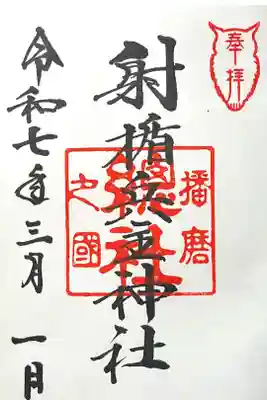 奉拝
射楯兵主神社
播磨
之國
総社
令和七年三月一日